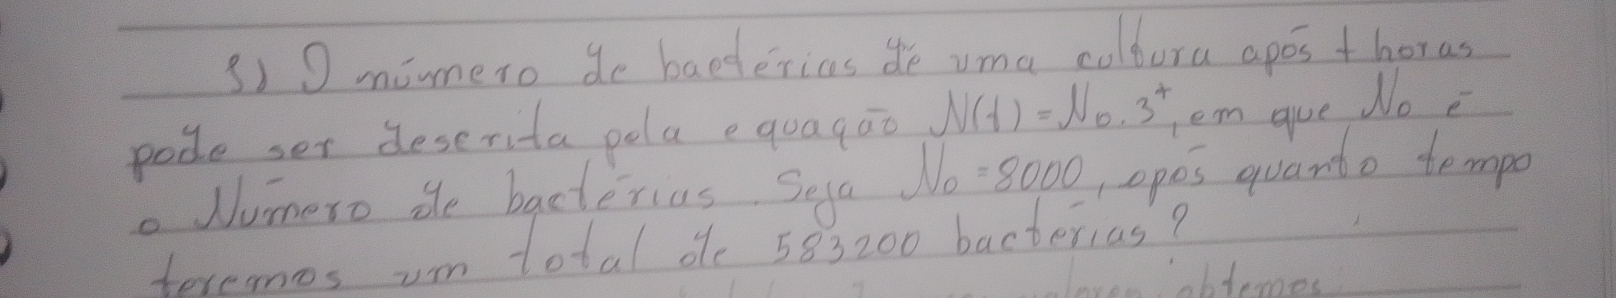 3) O número de bactérias de uma cultura após t horas
pode ser descrita pela equação N(t) = No.3^t, em que No é
o Número de bactérias. Seja No = 8000, após quanto tempo
teremos um total de 583200 bacterias?
obtemos